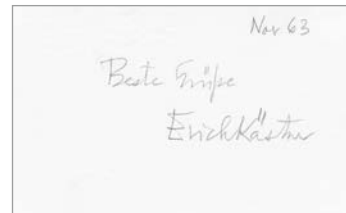 Nov 63
Beste Grüße
Erich Kästner